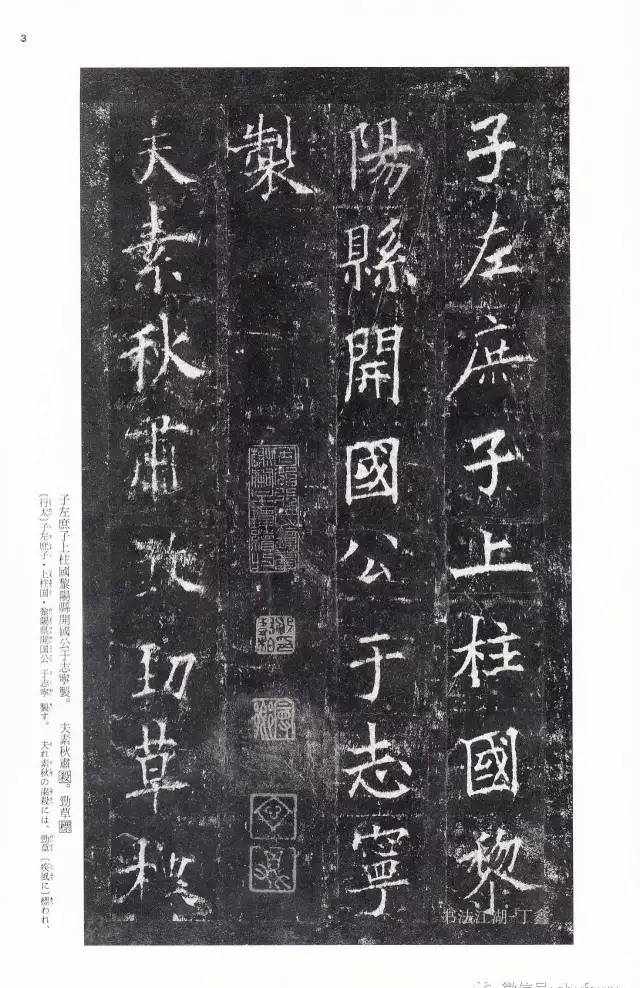 3
子左庶子上柱國黎
陽縣開國公于志寧
製
夫素秋肅煞勁草標
子左庶子上柱國黎陽縣開國公于志寧製。 夫素秋肅殺。勁草標
(行太)子左庶子・上柱国・黎陽県開国公 于志寧 製す。 夫れ素秋の肅殺には、勁草〔疾風に〕標われ、
书法江湖-丁鑫